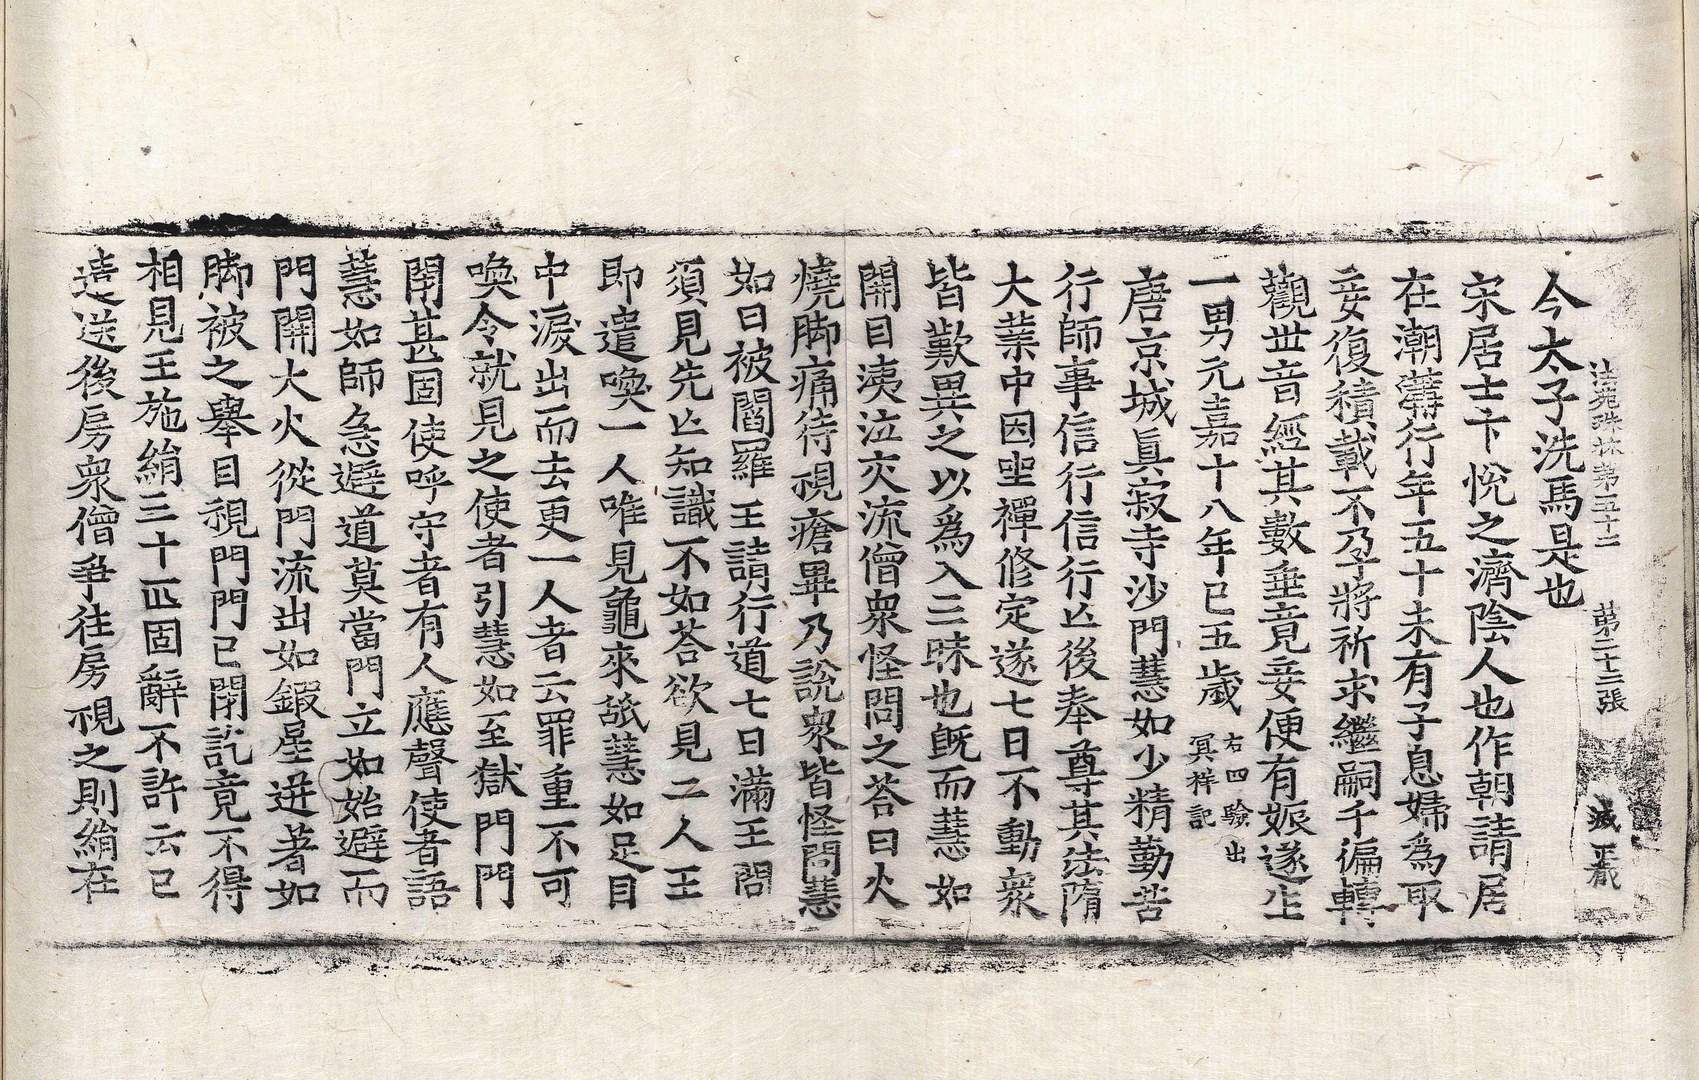 法苑珠林第五十二 第二十二張
今太子洗馬是也
宋居士卞悅之濟陰人也作朝請居
在潮溝行年五十未有子息婦為取
妾復積載不孕將祈求繼嗣千徧轉
觀世音經其數垂竟妾便有娠遂生
一男元嘉十八年已五歲 右四驗出冥祥記
唐京城眞寂寺沙門慧如少精勤苦
行師事信行信行亡後奉尊其法隋
大業中因坐禪修定遂七日不動衆
皆歎異之以爲入三昧也旣而慧如
開目洟泣交流僧衆怪問之荅曰火
燒脚痛待視瘡畢乃說衆皆怪問慧
如曰被閻羅王請行道七日滿王問
須見先亡知識不如荅欲見二人王
即遣喚一人唯見龜來舐慧如足目
中淚出而去更一人者云罪重不可
喚令就見之使者引慧如至獄門門
閉甚固使呼守者有人應聲使者語
慧如師急避道莫當門立如始避而
門開大火從門流出如鍜星迸著如
脚被之舉目視門門已閉訖竟不得
相見王施絹三十匹固辭不許云已
遣送後房衆僧爭往房視之則絹在